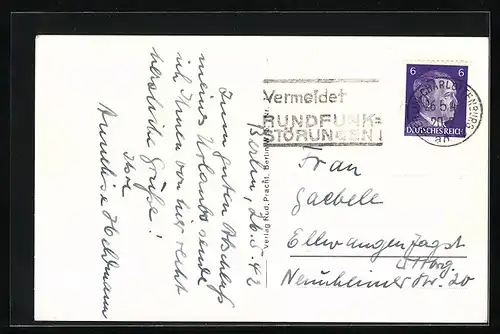 Berlin, 26.5.42
Zum guten Abschluß
meines Urlaubs sende
ich Ihnen von hier recht
herzliche Grüße!
Ihre
Annelise Heldmann
Verlag Rud. Pracht, Berlin
6 6
DEUTSCHES REICH
CHARLOTTENBURG
26.5.4
Vermeidet
RUNDFUNK=
STÖRUNGEN!
Frau
Gaebele
Ellwangen/Jagst
Wttbg.
Neunheimer Str. 20